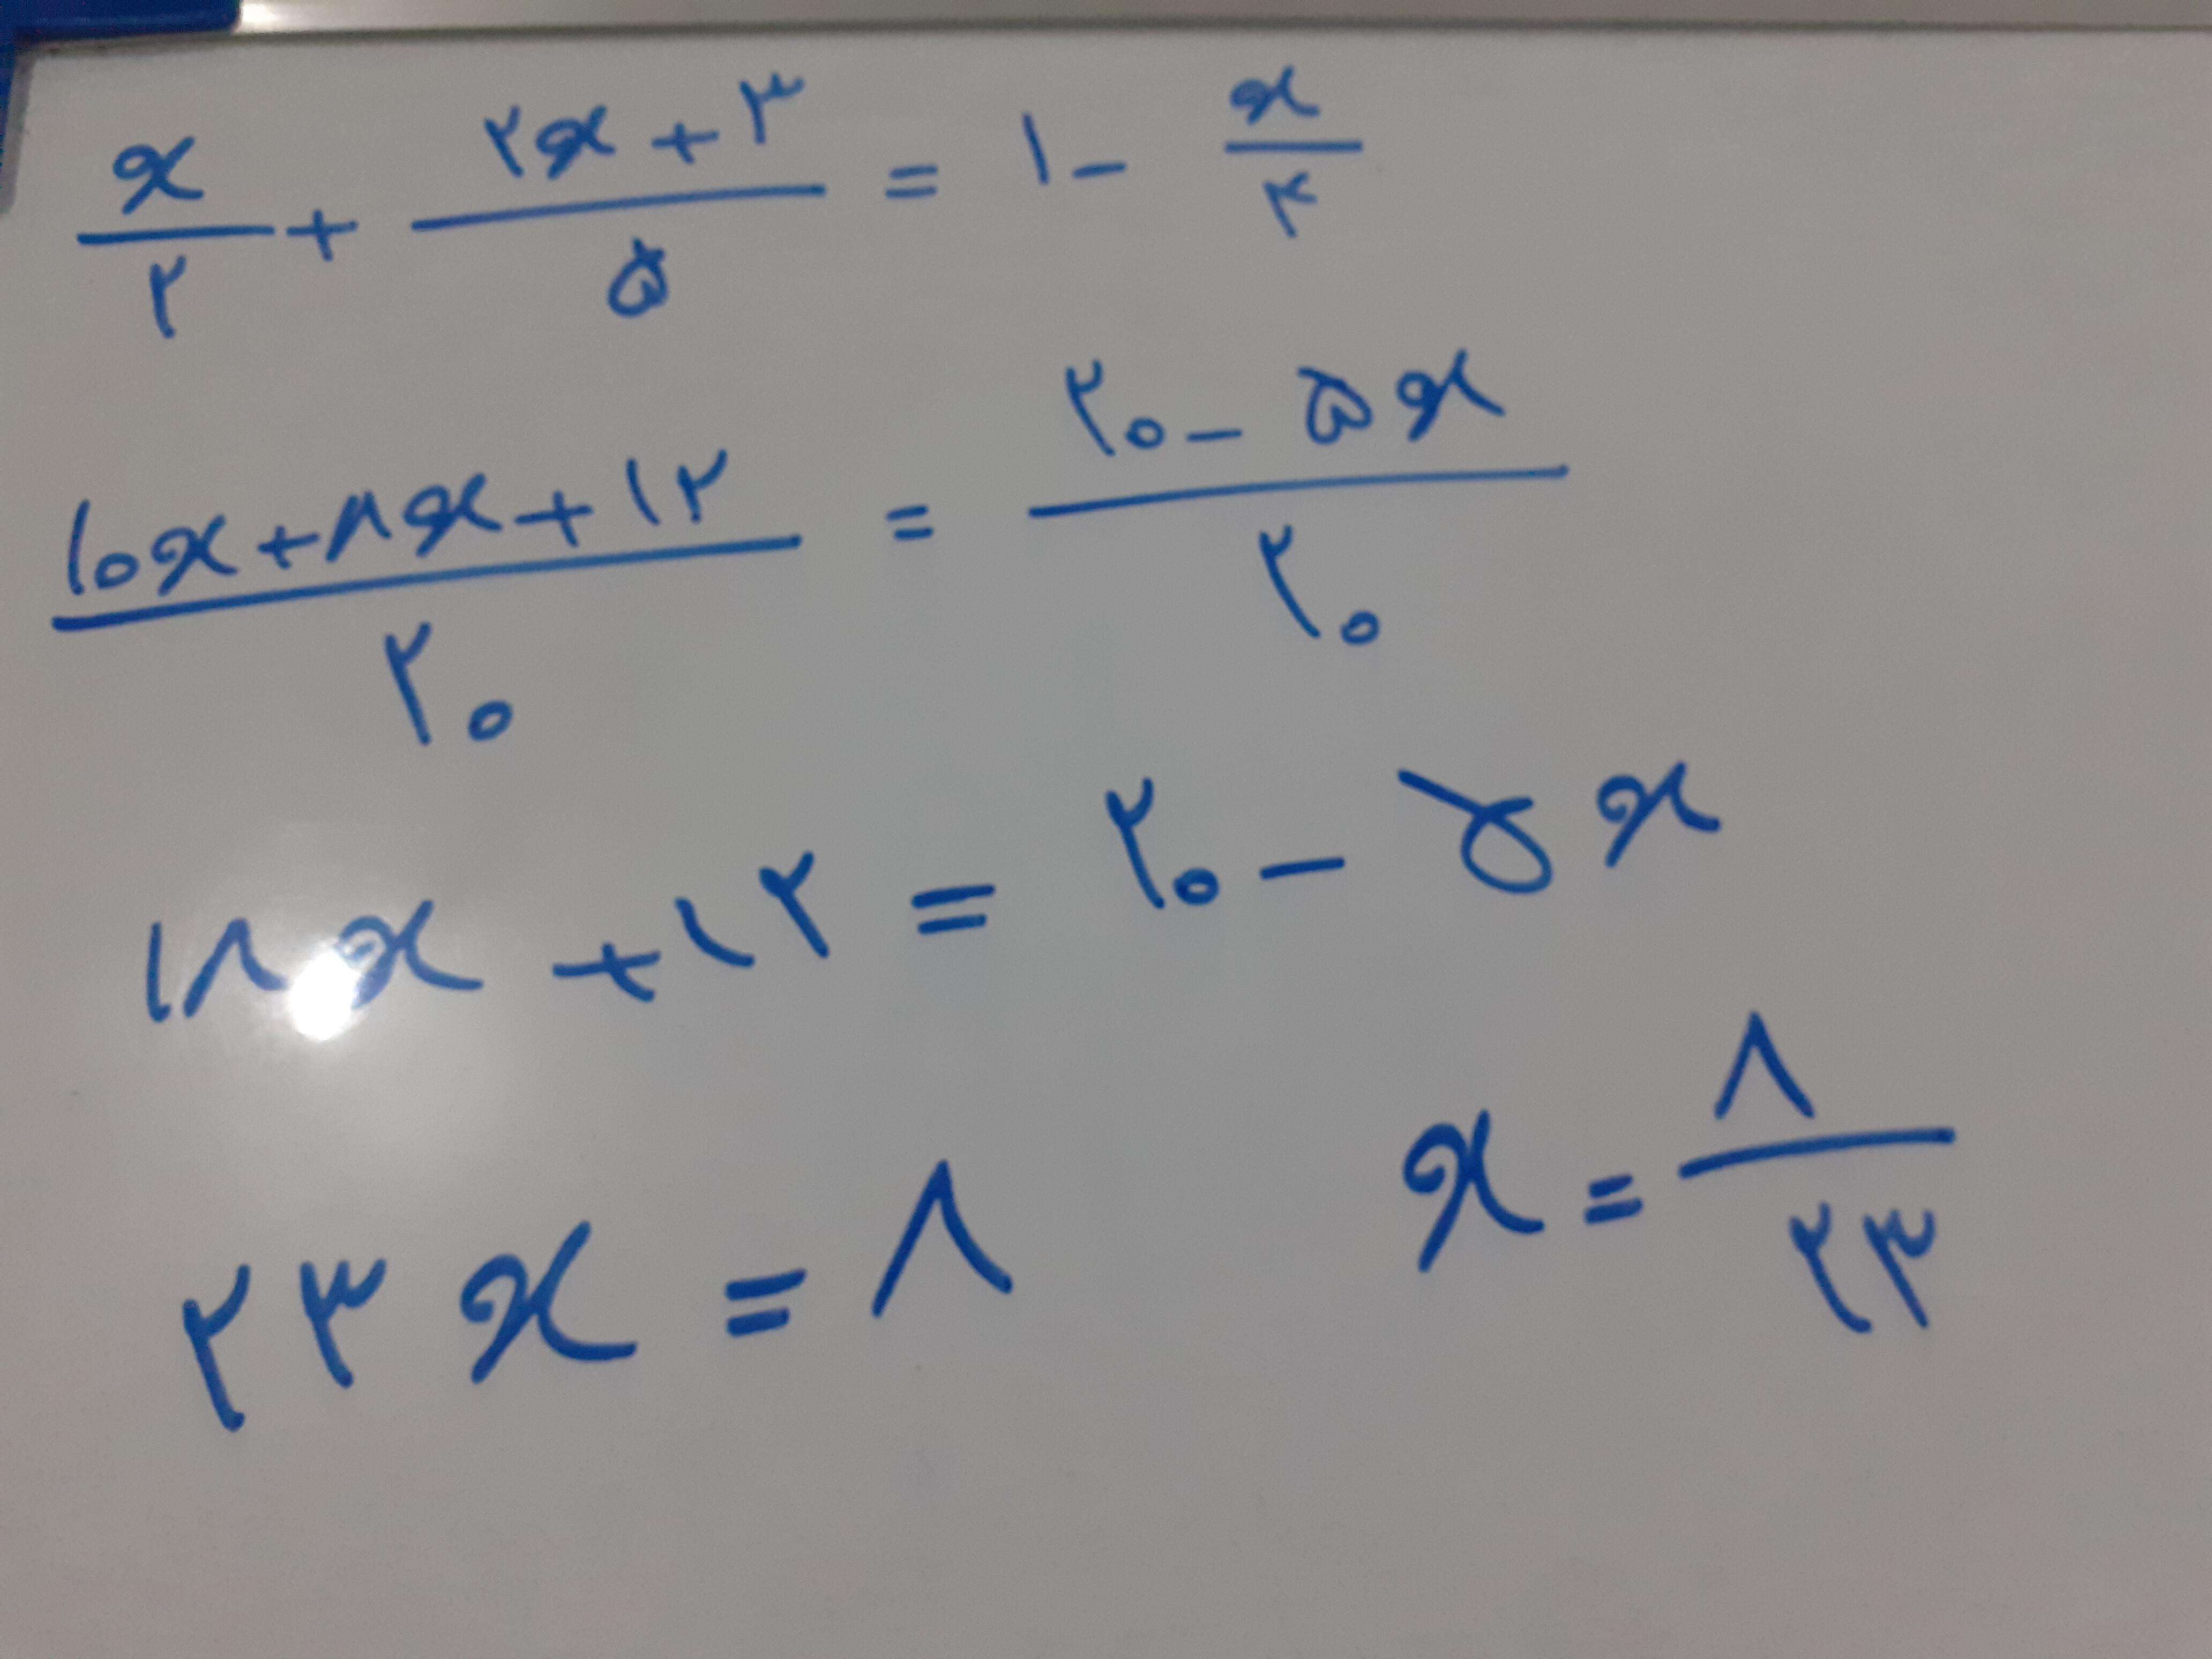 x/۲ + (۲x + ۳)/۵ = ۱ - x/۴
(۱۰x + ۸x + ۱۲)/۲۰ = (۲۰ - ۵x)/۲۰
۱۸x + ۱۲ = ۲۰ - ۵x
۲۳x = ۸
x = ۸/۲۳